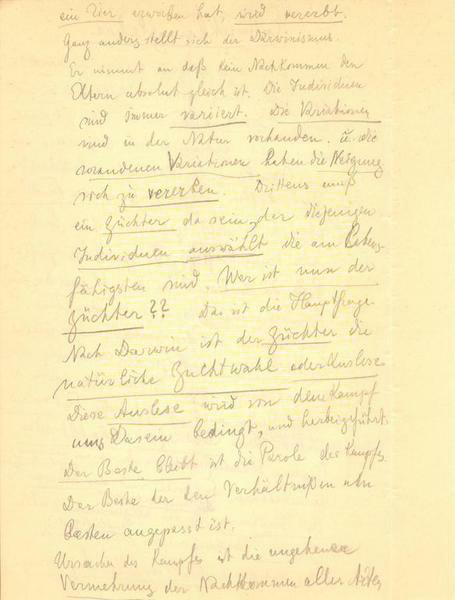 ein Tier, erworben hat, wird vererbt.
Ganz anders stellt sich der Darwinismus.
Er nimmt an daß kein Nachkommen den
Eltern absolut gleich ist. Die Individuen
sind immer variiert. Die Variationen
sind in der Natur vorhanden. u. die
vorandenen Variationen haben die Neigung
sich zu vererben. Drittens muß
ein Züchter da sein, der diejenigen
Individuen auswählt die am Lebens-
fähigsten sind. Wer ist nun der
Züchter?? Das ist die Hauptfrage.
Nach Darwin ist der Züchter die
natürliche Zuchtwahl oder Auslese
Diese Auslese wird von dem Kampf
ums Dasein bedingt, und herbeigeführt.
Der Beste bleibt ist die Parole des Kampfes.
Der Beste der den Verhältnißen am
besten angepasst ist.
Ursache des Kampfes ist die ungeheuere
Vermehrung der Nachkommen aller Arten